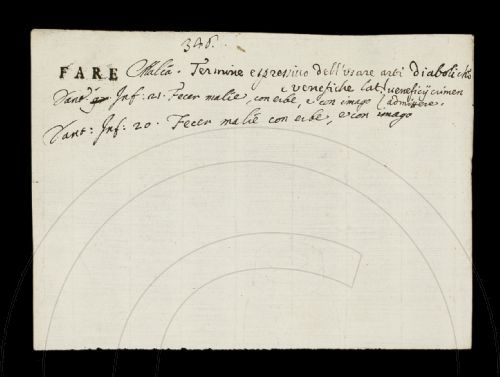 346.
FARE Malía. Termine espressivo dell'vsare arti diaboliche
e venefiche lat: veneficij crimen
Dant: Inf: 21. Fecer malie, con erbe, e con imago (admittere.
Dant: Inf: 20. Fecer malie con erbe, e con imago